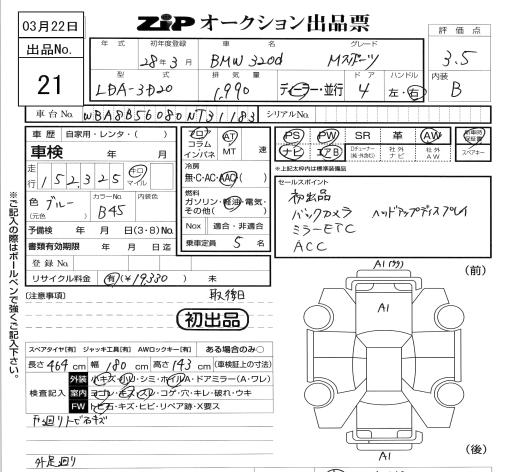 03月22日
ZIP オークション出品票
評価点
3.5
出品No.
21
年式
初年度登録
28年3月
車名
BMW 320d
グレード
Mスポーツ
内装
B
型式
LDA-3D20
排気量
1,990
ディーラー・並行
ドア
4
ハンドル
左・右
車台No.
WBA8B56080NT31183
シリアルNo.
車歴 自家用・レンタ・( )
車検 年 月
走行
152,325
キロ
マイル
色 ブルー
(元色)
カラーNo.
B45
内装色
予備検 年 月 日(3・8) No.
書類有効期限 年 月 日迄
登録No.
リサイクル料金 有(¥19330) 未
フロア
コラム
インパネ
AT
MT
速
冷房
無・C・AC・AAC
燃料
ガソリン・軽油・電気・
その他( )
Nox 適合・非適合
乗車定員 5 名
PS PW SR 革 AW
新車時保証書
ナビ エアB
Dチューナー
(純・外含む)
社外
ナビ
社外
AW
スペアキー
※上記太枠内は標準装備品
セールスポイント
初出品
バックカメラ ヘッドアップディスプレイ
ミラーETC
ACC
※ご記入の際はボールペンで強くご記入下さい。
(注意事項)
取得日
初出品
スペアタイヤ[有] ジャッキ工具[有] AWロックキー[有] ある場合のみ○
長さ 464 cm 幅 180 cm 高さ 143 cm (車検証上の寸法)
検査記入
外装 小キズ・小U・シミ・ホイルA・ドアミラー(A・ワレ)
室内 ヨゴレ・キズ・スレ・コゲ・穴・キレ・破れ・ウキ
FW トビ石・キズ・ヒビ・リペア跡・X要ス
下廻りトビ石キズ
外足廻り
A1
(前)
A1
A1
(後)